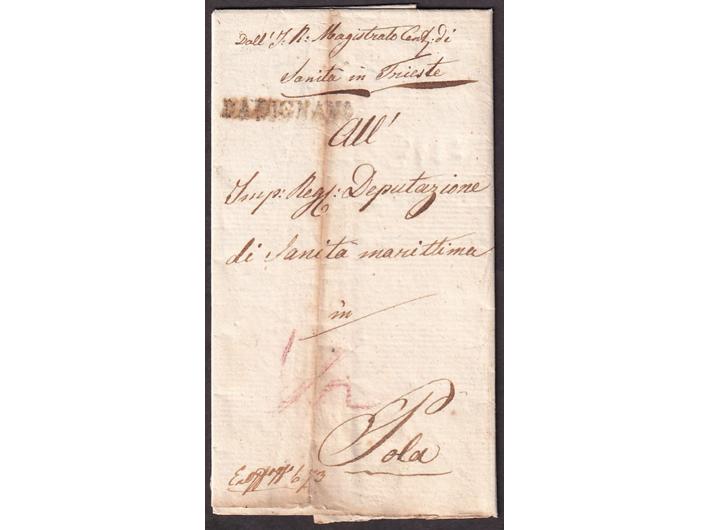 Dall' I. R. Magistrato Cent: di
Sanità in Trieste
All'
Imp: Reg: Deputazione
di Sanità marittima
in
Pola